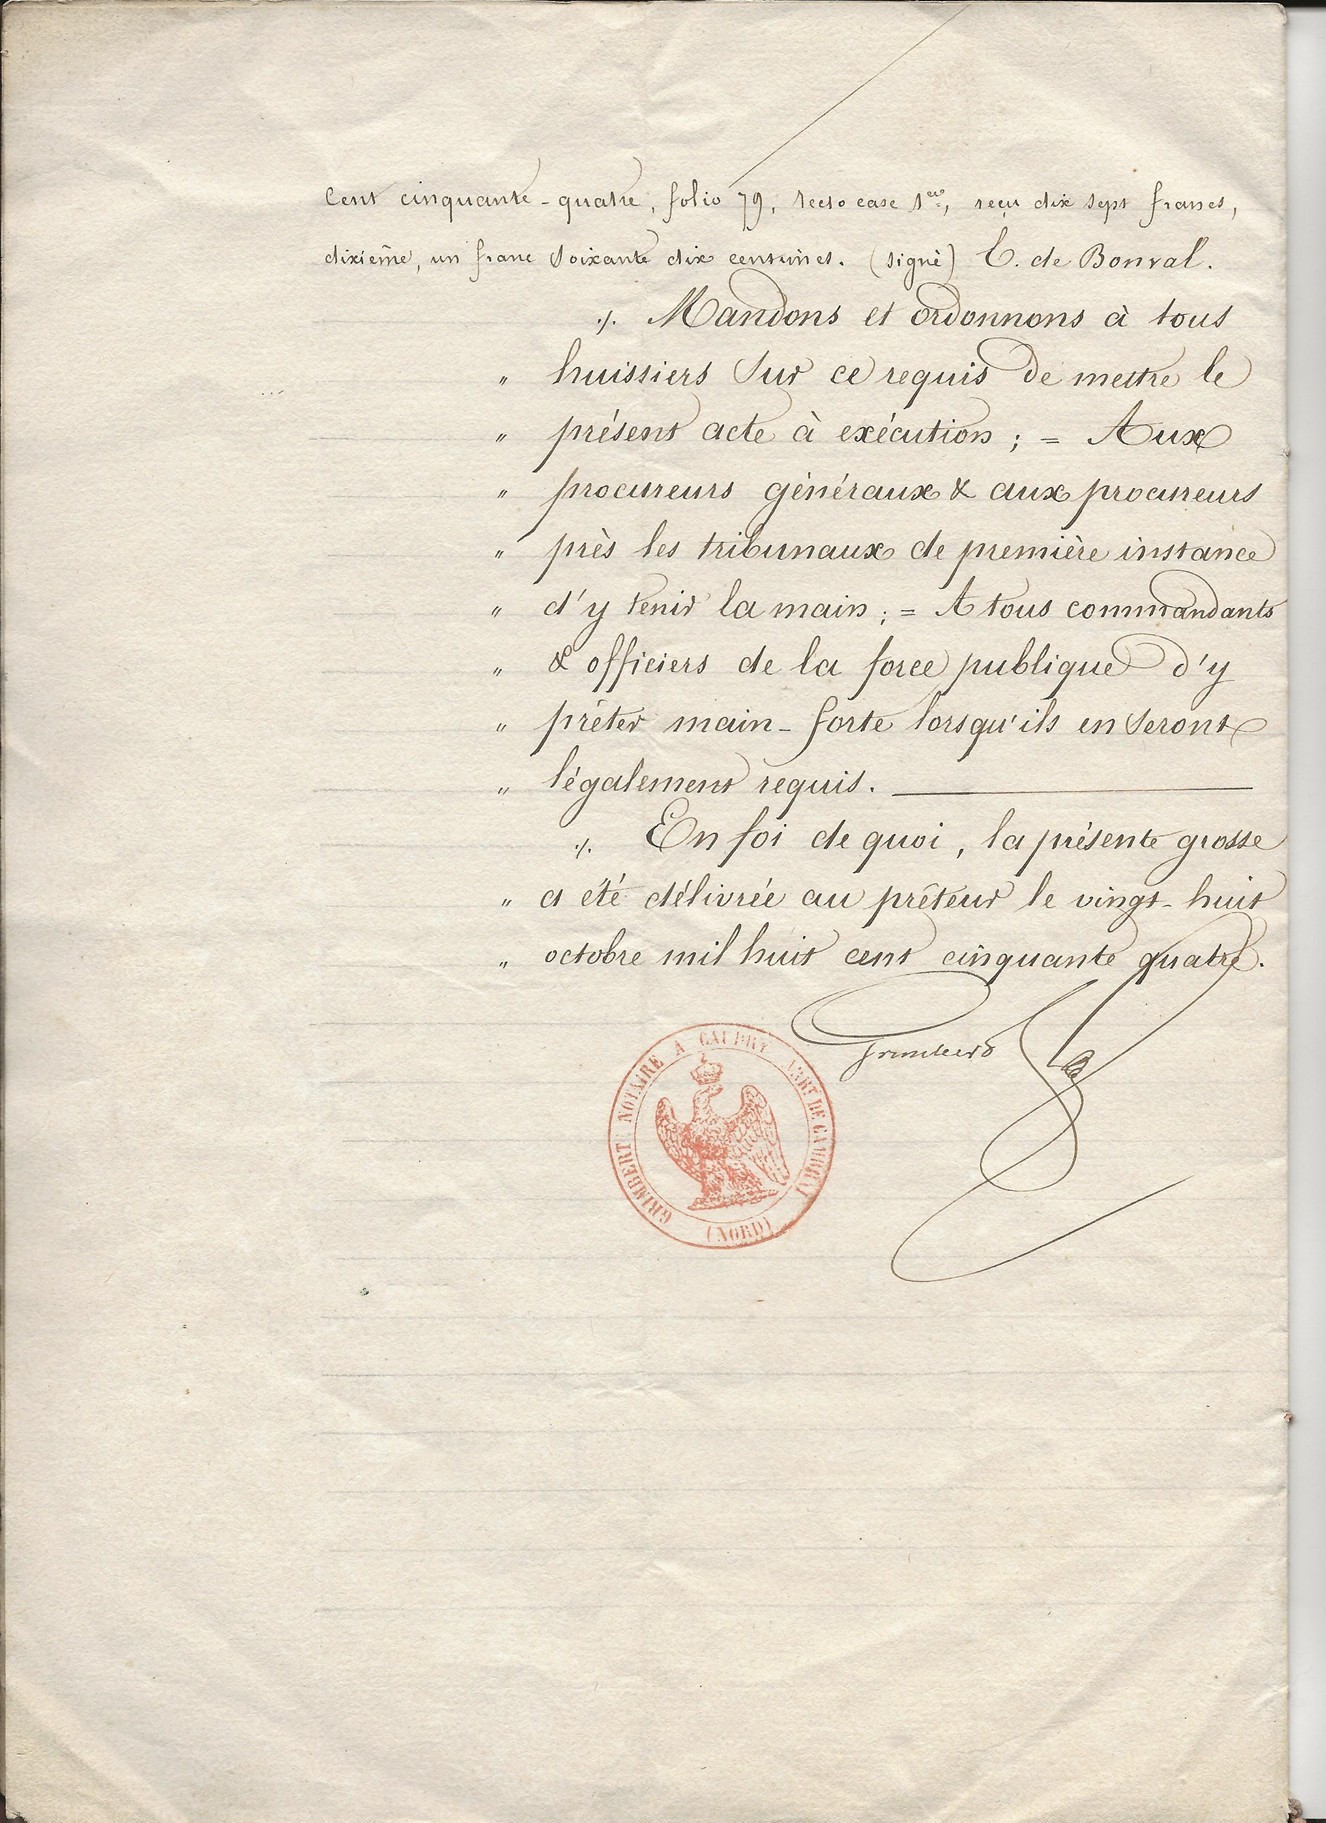 Cent cinquante-quatre, folio 79, recto case 1ere, reçu dix sept francs,
dixième, un franc soixante dix centimes. (signé) E. de Bonval.
./. Mandons et ordonnons à tous
" huissiers sur ce requis de mettre le
" présent acte à exécution ; = Aux
" procureurs généraux & aux procureurs
" près les tribunaux de première instance
" d'y tenir la main ; = A tous commandants
" & officiers de la force publique d'y
" prêter main-forte lorsqu'ils en seront
" légalement requis.
./. En foi de quoi, la présente grosse
" a été délivrée au prêteur le vingt-huit
" octobre mil huit cent cinquante quatre.
Grimbert
GRIMBERT NOTAIRE A CAUDRY ARRT DE CAMBRAI
(NORD)